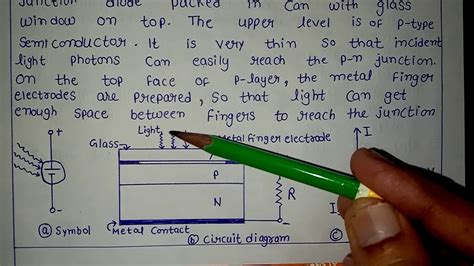 Junction diode packed in Can with glass
window on top. The upper level is of P-type
Semiconductor. It is very thin So that incident
light photons Can easily reach the p-n junction.
On the top face of P-layer, the metal finger
electrodes are prepared, So that light Can get
enough space between Fingers to reach the junction
Light
Metal Finger electrode
I
Glass
+
P
T
N
R
I
-
-
(a) Symbol
Metal Contact
(b) Circuit diagram
(c)